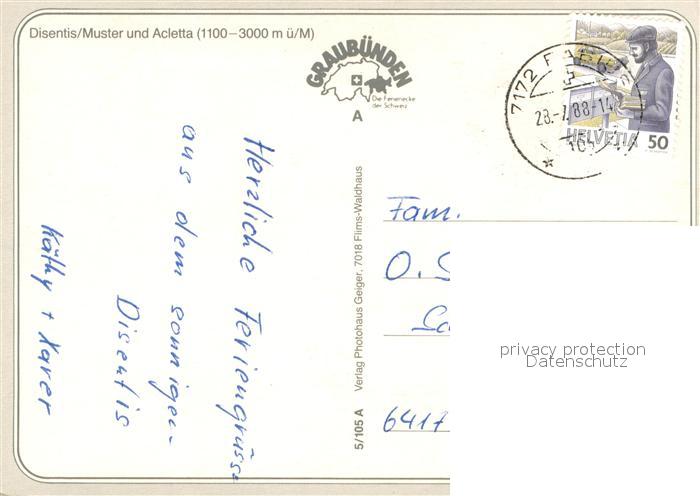 Disentis/Muster und Acletta (1100–3000 m ü/M)
GRAUBÜNDEN
Die Ferienecke
der Schweiz
A
HELVETIA 50
7172
28.-7.88-14
Herzliche Feriengrüsse
aus dem sonnigen
Disentis
Käthy + Xaver
5/105 A Verlag Photohaus Geiger, 7018 Flims-Waldhaus
Fam.
O.
6417
privacy protection
Datenschutz